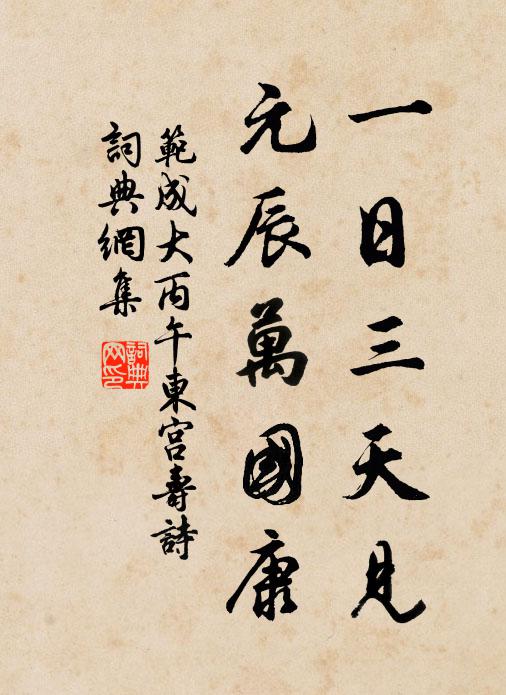 一日三天見
元辰萬國康
範成大丙午東宮壽詩
詞典網集
詞典网印